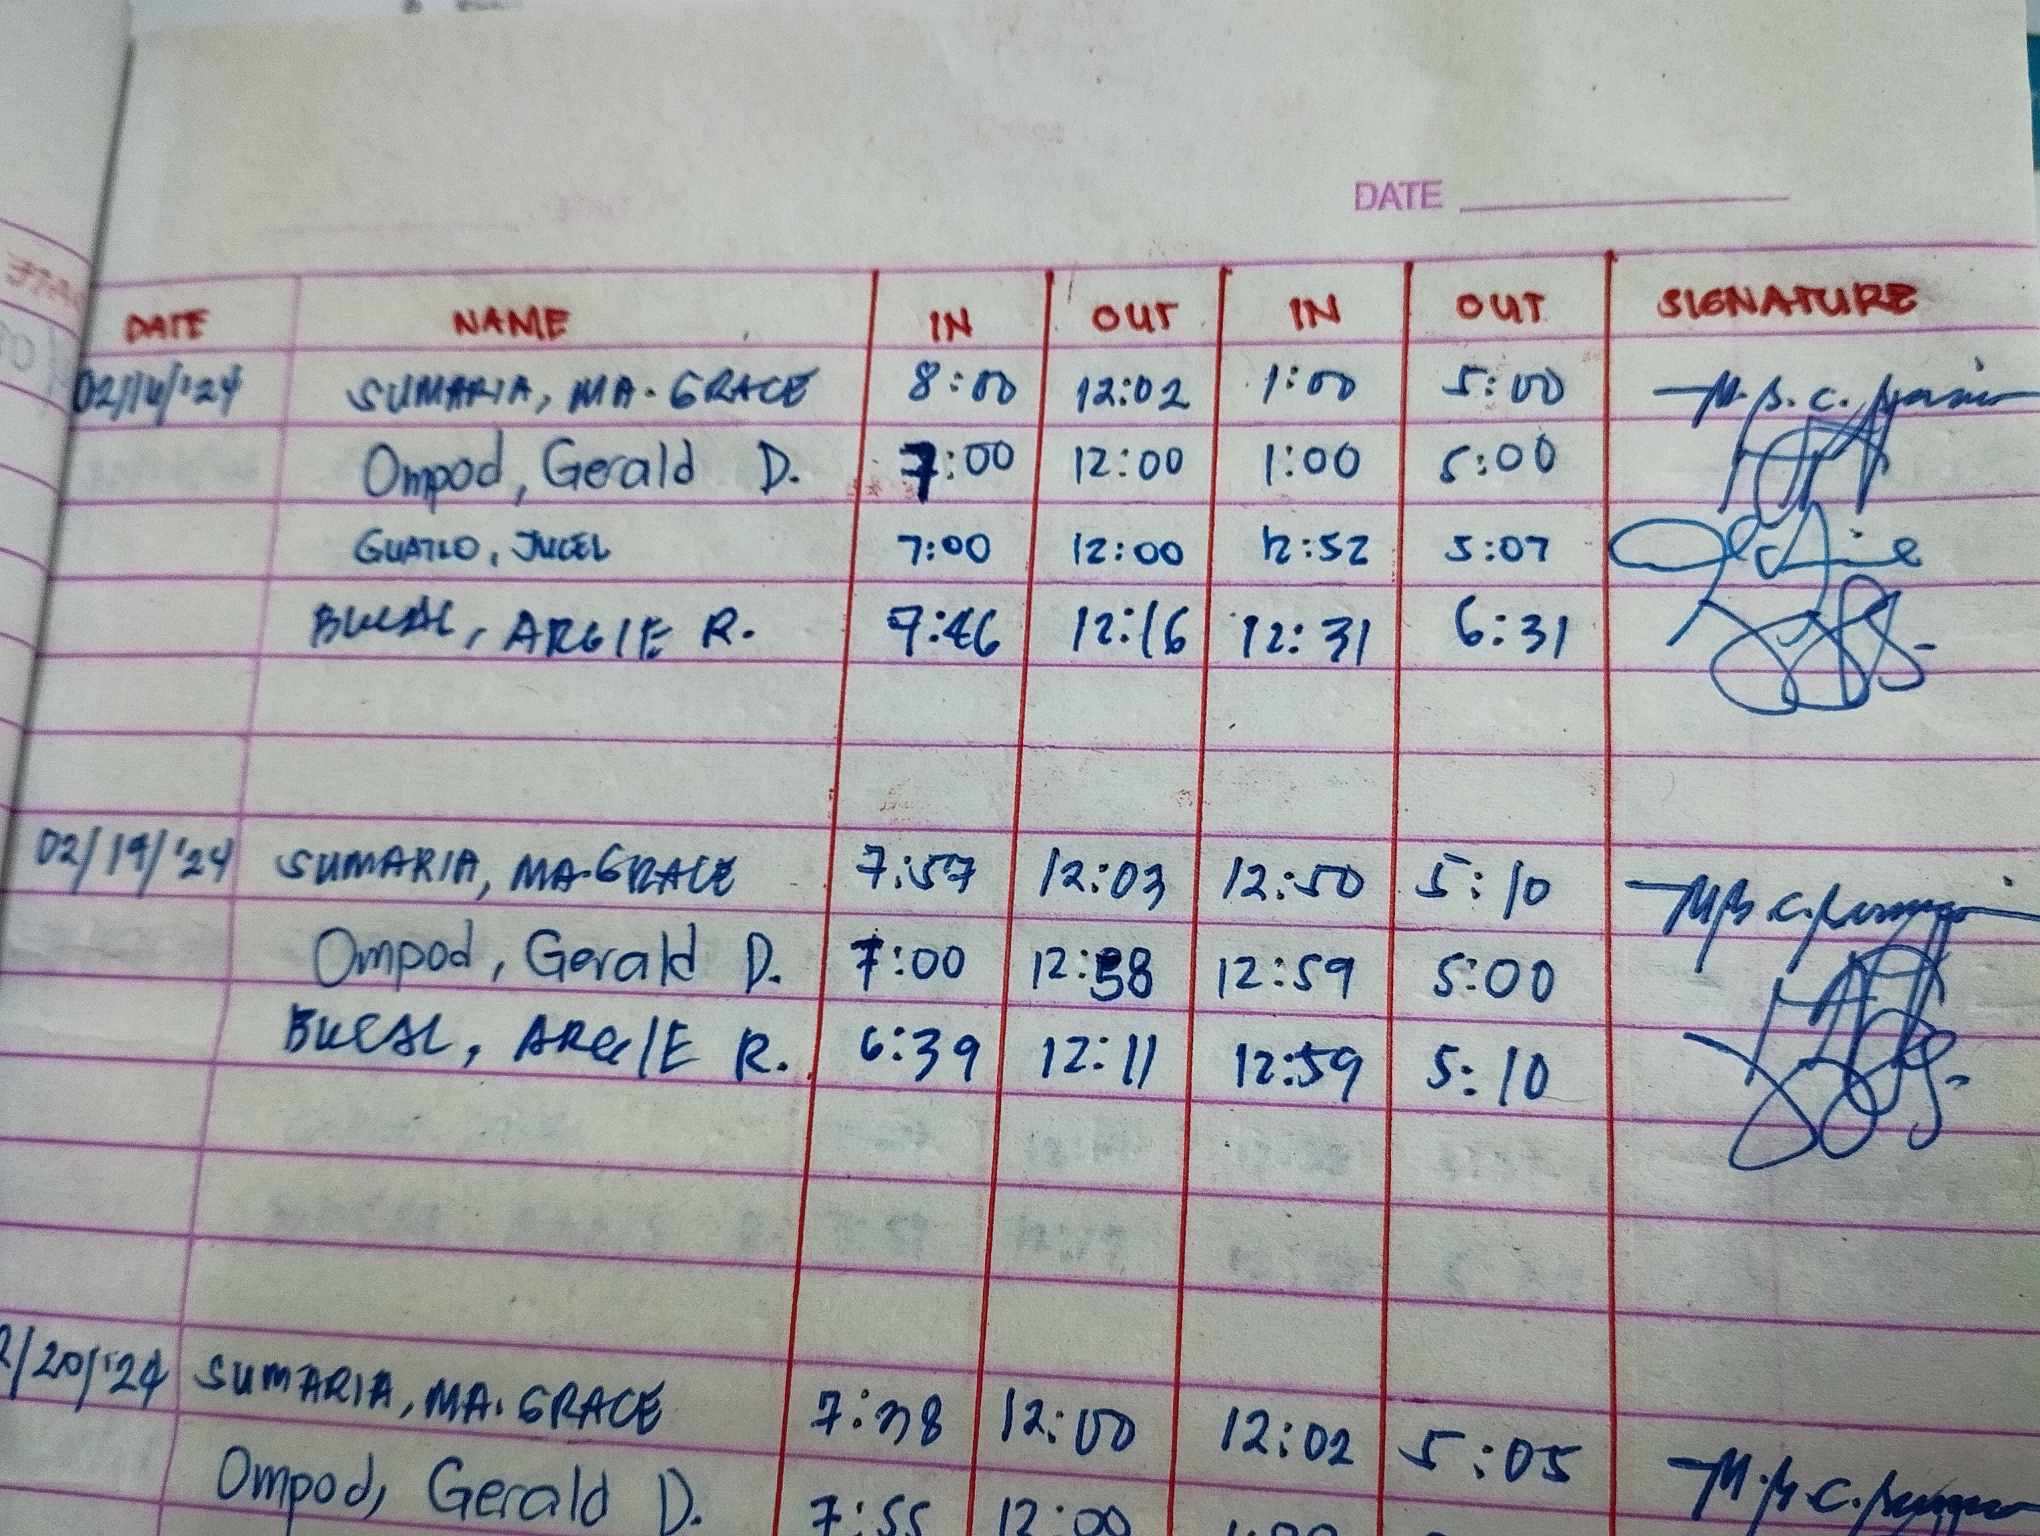 DATE
DATE NAME IN OUT IN OUT SIGNATURE
02/16/'24 SUMARIA, MA. GRACE 8:00 12:02 1:00 5:00
Ompod, Gerald D. 7:00 12:00 1:00 5:00
GUATLO, JUCEL 7:00 12:00 12:52 5:07
BUCAL, ARGIE R. 7:46 12:16 12:31 6:31
02/19/'24 SUMARIA, MA. GRACE 7:57 12:03 12:50 5:10
Ompod, Gerald D. 7:00 12:58 12:59 5:00
BUCAL, ARGIE R. 6:39 12:11 12:59 5:10
2/20/'24 SUMARIA, MA. GRACE 7:38 12:00 12:02 5:05
Ompod, Gerald D. 7:55 12:00